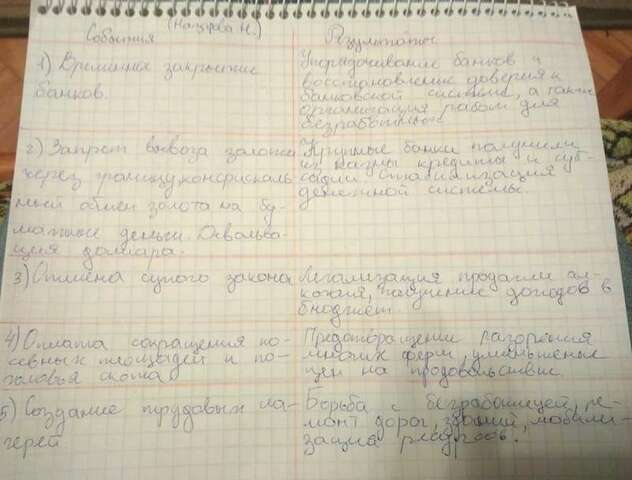 (Назирова Н.)
События
Результаты
1) Временное закрытие
банков.
Упорядочивание банков и
восстановление доверия к
банковской системе, а также
организация работ для
безработных
2) Запрет вывоза золота
через границу,
ный обмен золота на бу-
мажные деньги. Девальва-
ция доллара.
Крупные банки получили
из казны кредиты и суб-
сидии стабилизация
денежной системы.
3) Отмена сухого закона
Легализация продажи ал-
коголя, получение доходов в
бюджет
4) Оплата сокращения по-
севных площадей и по-
головья скота
Предотвращение разорения
многих ферм, уменьшение
цен на продовольствие.
5) Создание трудовых ла-
герей
Борьба с безработицей, ре-
монт дорог, зданий, мобили-
зация ресурсов.